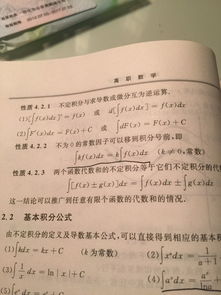 高 职 数 学
性质 4.2.1 不定积分与求导数或微分互为逆运算.
(1)[∫f(x)dx]′=f(x) 或 d[∫f(x)dx]=f(x)dx
(2)∫F′(x)dx=F(x)+C 或 ∫dF(x)=F(x)+C
性质 4.2.2 不为0的常数因子可以移到积分号前,即
∫kf(x)dx=k∫f(x)dx (k≠0,常数)
性质 4.2.3 两个函数代数和的不定积分等于它们不定积分的代
∫[f(x)±g(x)]dx=∫f(x)dx±∫g(x)d
这一结论可以推广到任意有限个函数的代数和的情况.
2.2 基本积分公式
由不定积分的定义及导数基本公式,可以直接得到相应的基本积
(1)∫kdx=kx+C (k为常数) (2)∫x
(3)∫1/x dx=ln|x|+C (4)∫aˣdx=
(5)